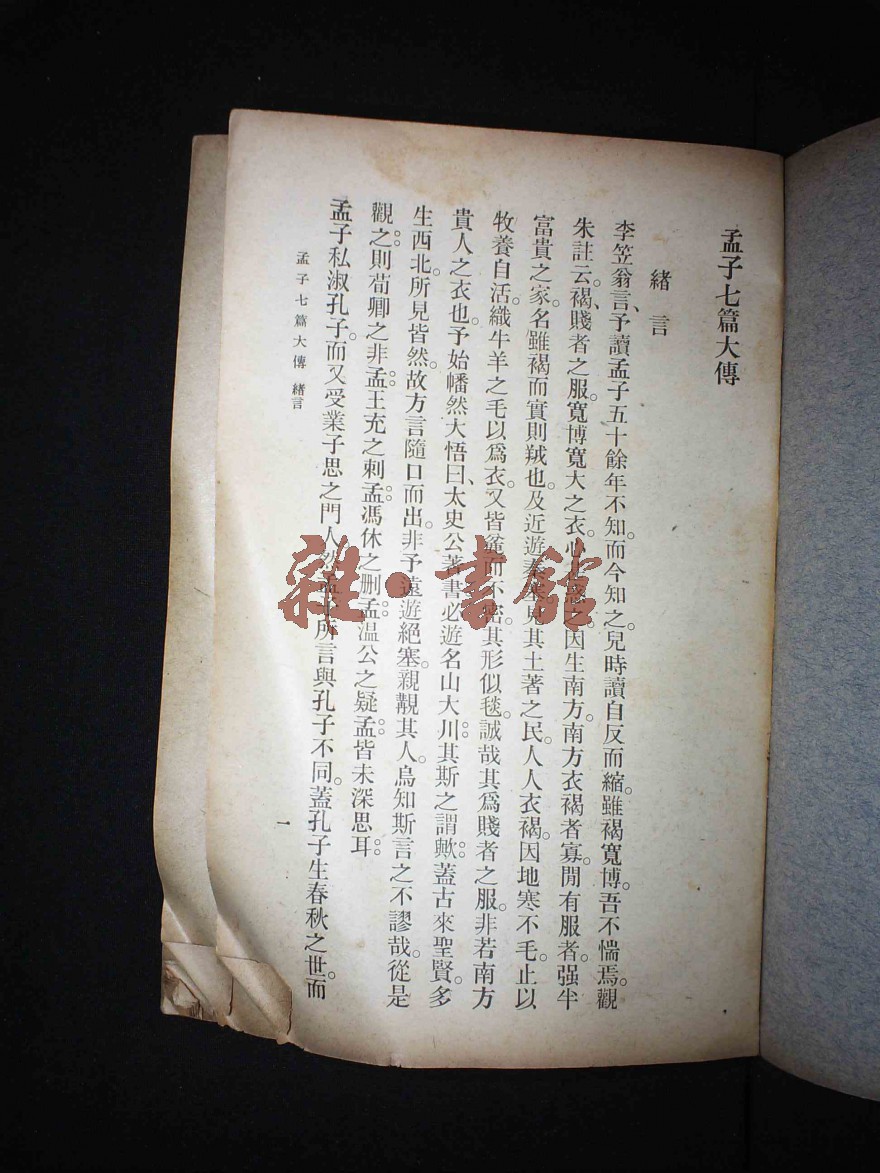 孟子七篇大傳
緒言
李笠翁言、予讀孟子五十餘年不知。而今知之。兒時讀自反而縮。雖褐寬博。吾不惴焉。觀
朱註云、褐、賤者之服。寬博寬大之衣。心惑之。因生南方。南方衣褐者寡。閒有服者。强半
富貴之家。名雖褐而實則羢也。及近遊秦塞。見其土著之民。人人衣褐。因地寒不毛。止以
牧養自活。織牛羊之毛以爲衣。又皆麄而不密。其形似毯。誠哉其爲賤者之服。非若南方
貴人之衣也。予始幡然大悟曰、太史公著書必遊名山大川。其斯之謂歟。蓋古來聖賢。多
生西北。所見皆然。故方言隨口而出。非予遠遊絕塞。親覩其人。烏知斯言之不謬哉。從是
觀之。則荀卿之非孟。王充之刺孟。馮休之删孟。温公之疑孟。皆未深思耳。
孟子私淑孔子。而又受業子思之門人。然孟子所言與孔子不同。蓋孔子生春秋之世。而
孟子七篇大傳 緒言
一
雜·書館